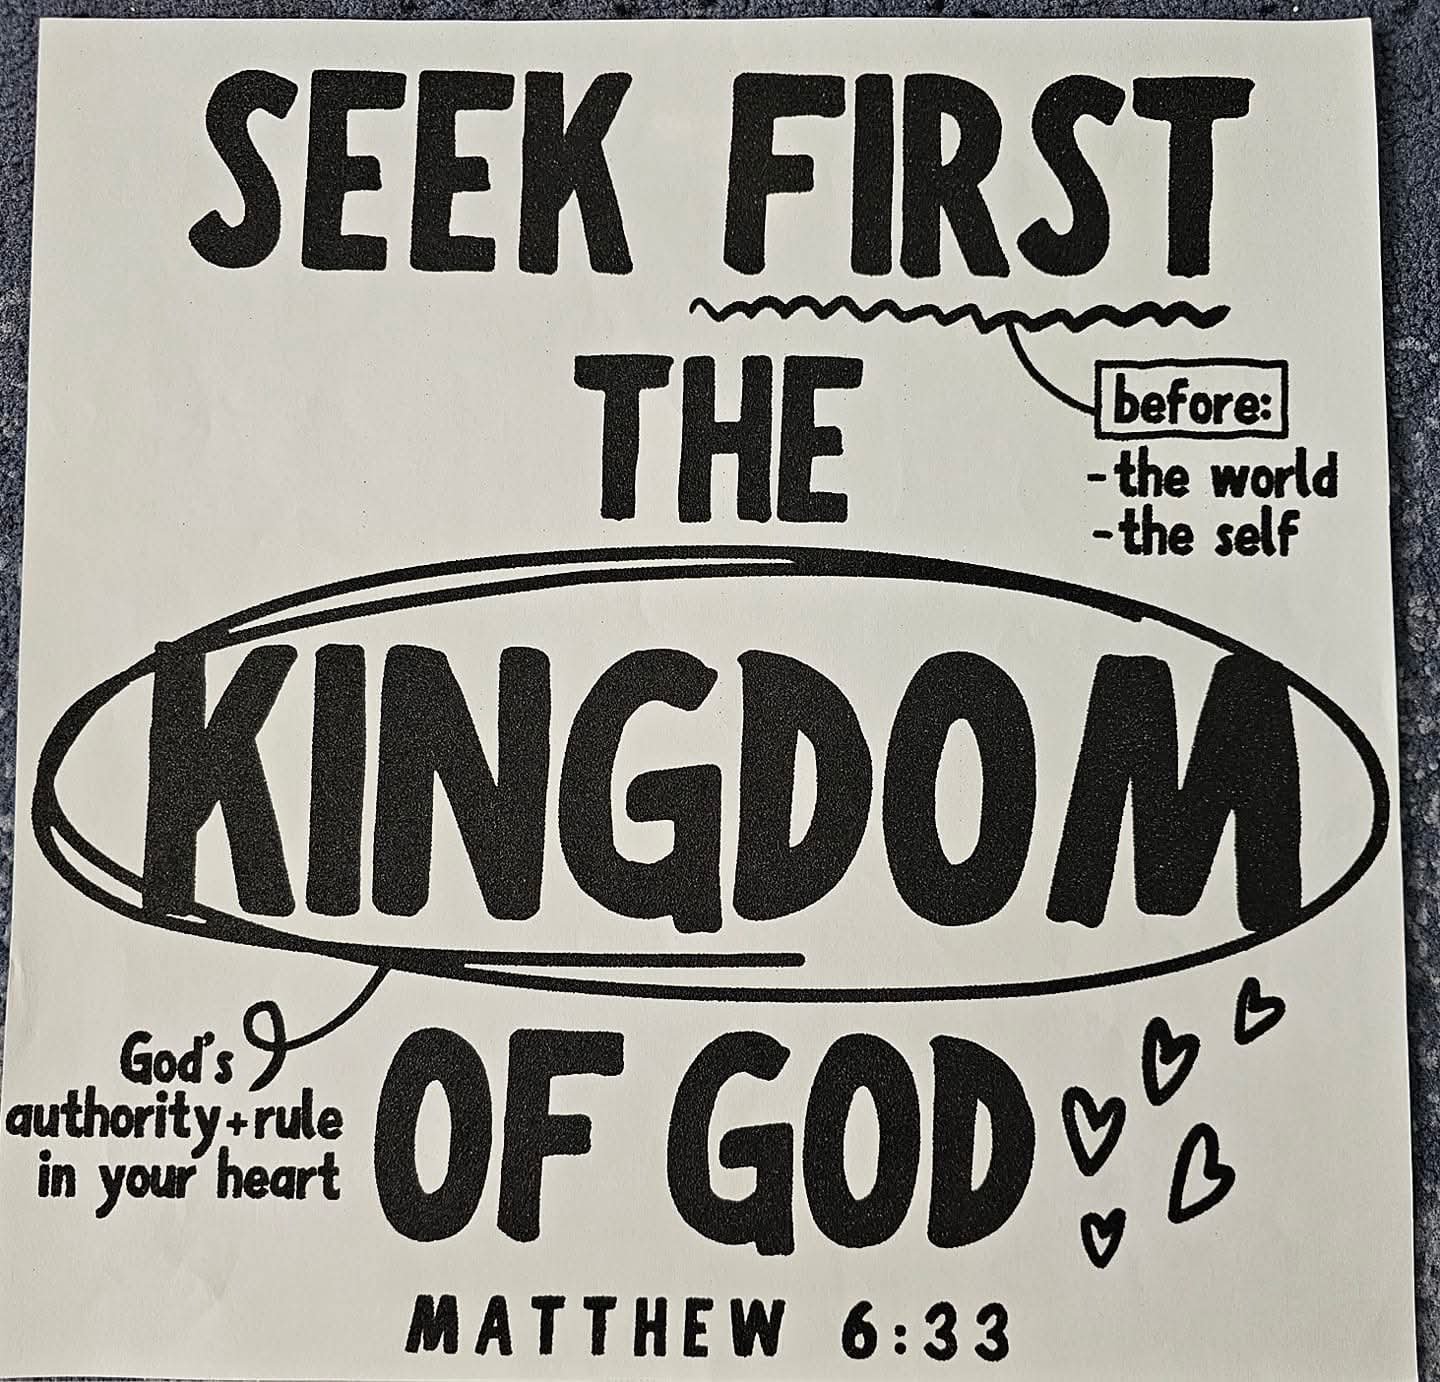 SEEK FIRST
THE
before:
-the world
-the self
KINGDOM
God's
authority+rule
in your heart
OF GOD
MATTHEW 6:33